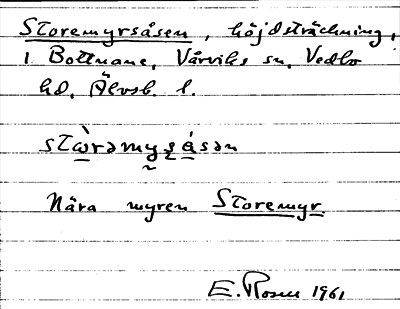 Storemyrsåsen, höjdsträckning,
i Bottnane, Vårviks sn, Vedbo
hd, Älvsb. l.
stɷ̀rəmyʂåsən
Nära myren Storemyr.
E. Rosen 1961